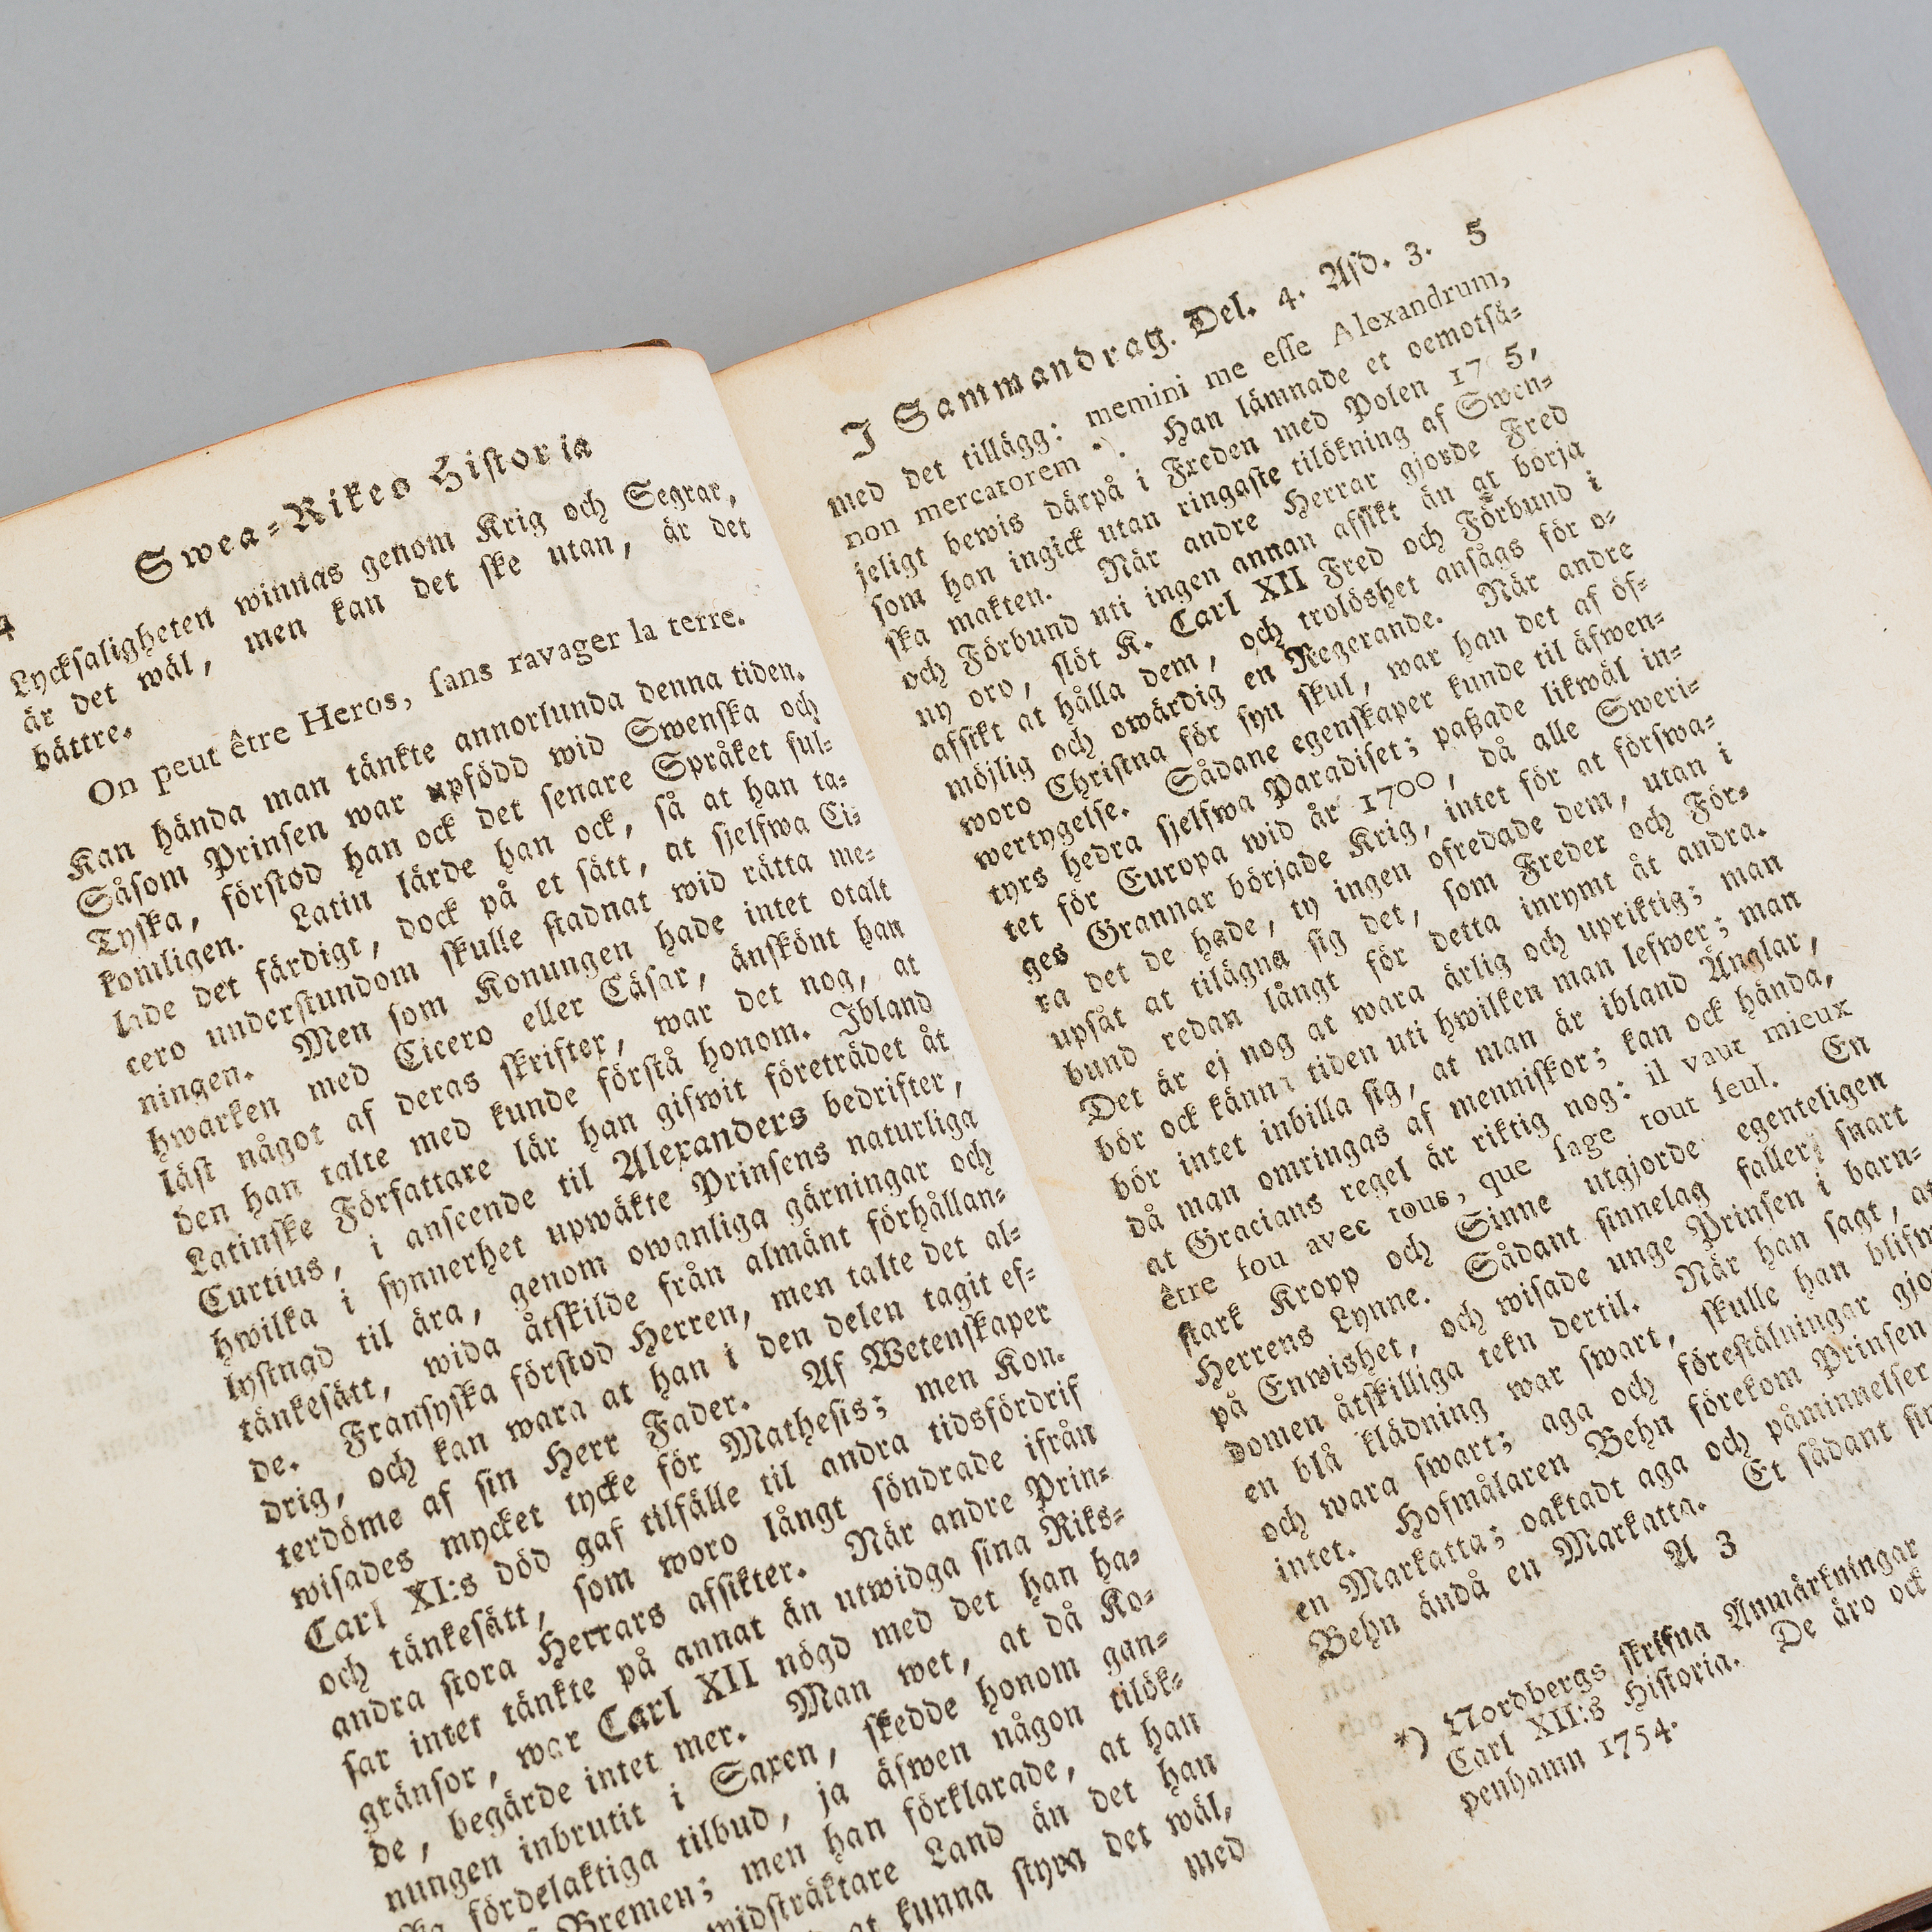 4
Swea-Rikes Historia
Lycksaligheten winnas genom Krig och Segrar,
är det wäl, men kan det ske utan, är det
bättre.
On peut être Heros, sans ravager la terre.
Kan hända man tänkte annorlunda denna tiden.
Såsom Prinsen war upfödd wid Swenska och
Tyska, förstod han ock det senare Språket ful-
komligen. Latin lärde han ock, så at han ta-
lade det färdigt, dock på et sätt, at sjelfwa Ci-
cero understundom skulle stadnat wid rätta me-
ningen. Men som Konungen hade intet otalt
hwarken med Cicero eller Cäsar, änskönt han
läst något af deras skrifter, war det nog, at
den han talte med kunde förstå honom. Ibland
Latinske Författare lär han gifwit företrädet åt
Curtius, i anseende til Alexanders bedrifter,
hwilka i synnerhet upwäkte Prinsens naturliga
lystnad til ära, genom owanliga gärningar och
tänkesätt, wida åtskilde från almänt förhållan-
de. Fransyska förstod Herren, men talte det al-
drig, och kan wara at han i den delen tagit ef-
terdöme af sin Herr Fader. Af Wetenskaper
wisades mycket tycke för Mathesis; men Kon.
Carl XI:s död gaf tilfälle til andra tidsfördrif
och tänkesätt, som woro långt söndrade ifrån
andra stora Herrars afsikter. När andre Prin-
sar intet tänkte på annat än utwidga sina Riks-
gränsor, war Carl XII nögd med det han ha-
de, begärde intet mer. Man wet, at då Ko-
nungen inbrutit i Saxen, skedde honom gan-
ska fördelaktiga tilbud, ja äfwen någon tilök-
Bremen; men han förklarade, at han
widsträktare Land än det han
at kunna styra det wäl,
med
I Sammandrag. Del. 4. Afd. 3. 5
med det tillägg: memini me esse Alexandrum,
non mercatorem *). Han lämnade et oemotsä-
jeligt bewis därpå i Freden med Polen 17 5,
som han ingick utan ringaste tilökning af Swen-
ska makten. När andre Herrar gjorde Fred
och Förbund uti ingen annan afsikt än at börja
ny oro, slöt K. Carl XII Fred och Förbund i
afsikt at hålla dem, och trolöshet ansågs för o-
möjlig och owärdig en Regerande. När andre
woro Christna för syn skul, war han det af öf-
wertygelse. Sådane egenskaper kunde til äfwen-
tyrs hedra sjelfwa Paradiset; paßade likwäl in-
tet för Europa wid år 1700, då alle Sweri-
ges Grannar började Krig, intet för at förswa-
ra det de hade, ty ingen ofredade dem, utan i
upsåt at tilägna sig det, som Freder och För-
bund redan långt för detta inrymt åt andra.
Det är ej nog at wara ärlig och upriktig; man
bör ock känna tiden uti hwilken man lefwer; man
bör intet inbilla sig, at man är ibland Änglar,
då man omringas af menniskor; kan ock hända,
at Gracians regel är riktig nog: il vaut mieux
être fou avec tous, que sage tout seul. En
stark Kropp och Sinne utgjorde egenteligen
Herrens Lynne. Sådant sinnelag faller snart
på Enwishet, och wisade unge Prinsen i barn-
domen åtskilliga tekn dertil. När han sagt, at
en blå klädning war swart, skulle han blifw
och wara swart; aga och föreställningar gjo
intet. Hofmålaren Behn förekom Prinsen
en Markatta; oaktadt aga och påminnelser
Behn ändå en Markatta. Et sådant sin
A 3
*) Nordbergs skrifna Anmärkningar
Carl XII:s Historia. De äro ock
penhamn 1754.